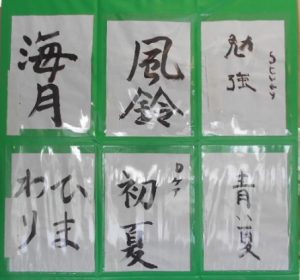 海月
風鈴
勉強
ひま
わり
初夏
青い夏